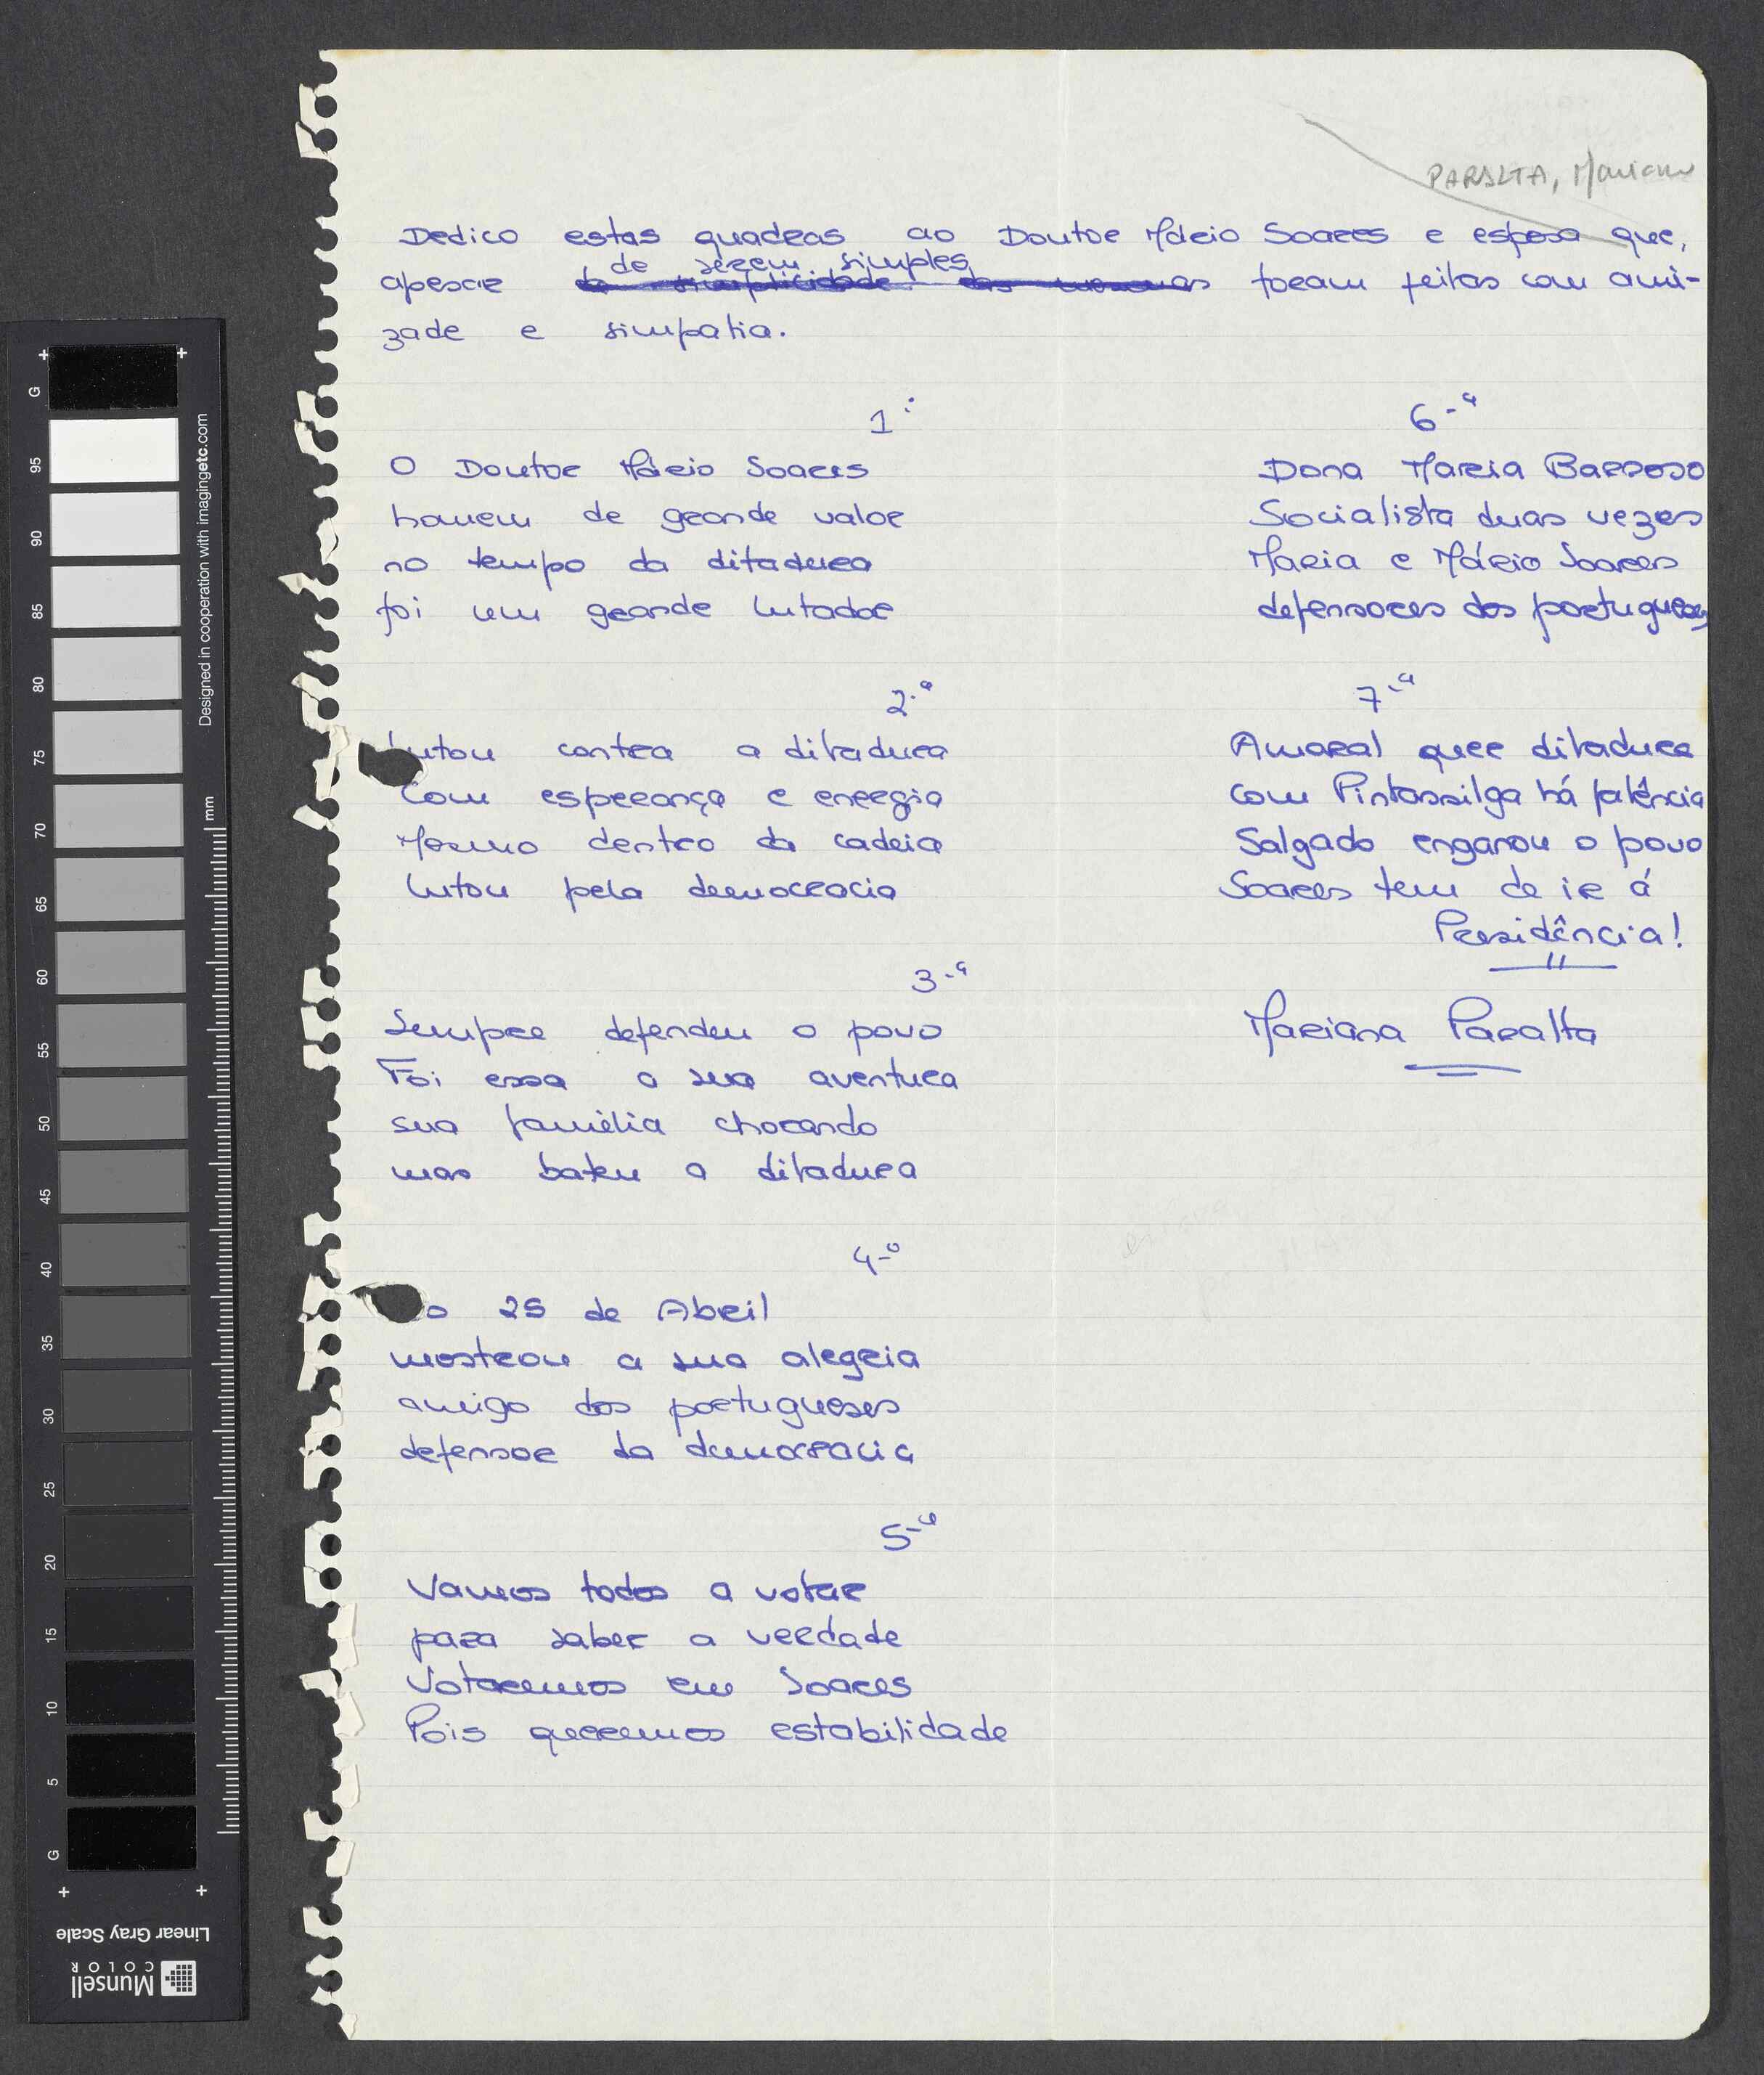 PARALTA, Mariana
Dedico estas quadras ao Doutor Mário Soares e esposa que,
de serem simples
apesar da simplicidade das mesmas foram feitas com ami-
zade e simpatia.
1.ª
O Doutor Mário Soares
homem de grande valor
no tempo da ditadura
foi um grande lutador
2.ª
Lutou contra a ditadura
Com esperança e energia
Mesmo dentro da cadeia
lutou pela democracia
3.ª
Sempre defendeu o povo
Foi essa a sua aventura
sua família chorando
mas bateu a ditadura
4.ª
25 de Abril
mostrou a sua alegria
amigo dos portugueses
defensor da democracia
5.ª
Vamos todos a votar
para saber a verdade
Votaremos em Soares
Pois queremos estabilidade
6.ª
Dona Maria Barroso
Socialista duas vezes
Maria e Mário Soares
defensores dos portugueses
7.ª
Amaral quer ditadura
com Pintassilga há falência
Salgado enganou o povo
Soares tem de ir á
Presidência!
Mariana Paralta
G
95
90
85
80
75
70
65
60
55
50
45
40
35
30
25
20
15
10
5
G
mm
Designed in cooperation with imagingetc.com
Linear Gray Scale
Munsell
COLOR